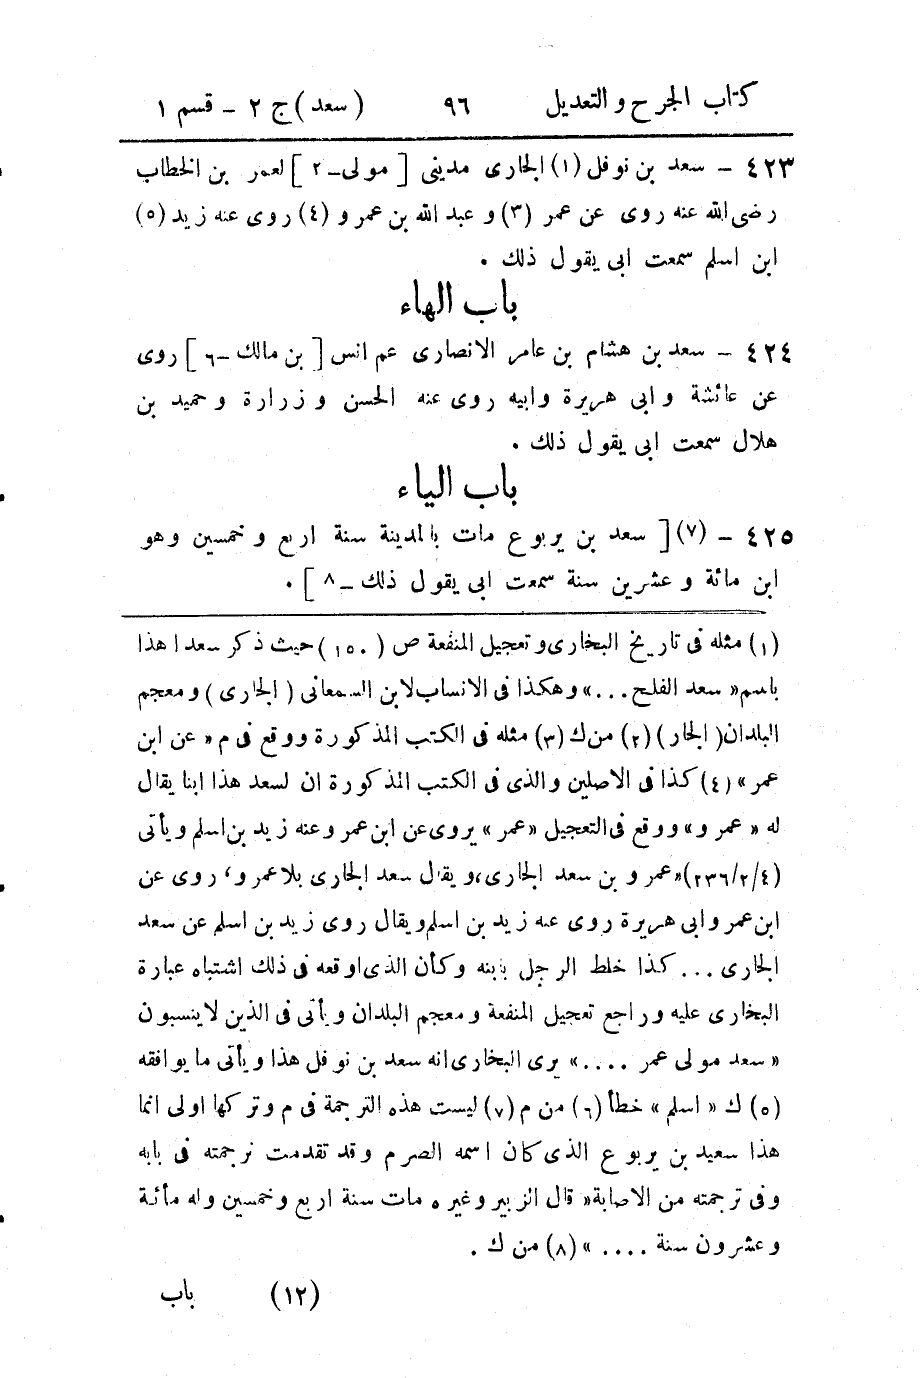 كتاب الجرح والتعديل ٩٦ (سعد) ج ٢ - قسم ١
٤٢٣ - سعد بن نوفل (١) الجارى مدينى [مولى-٢] لعمر بن الخطاب
رضى الله عنه روى عن عمر (٣) و عبد الله بن عمرو (٤) روى عنه زيد (٥)
ابن اسلم سمعت ابى يقول ذلك .
باب الهاء
٤٢٤ - سعد بن هشام بن عامر الانصارى عم انس [بن مالك-٦] روى
عن عائشة و ابى هريرة وابيه روى عنه الحسن و زرارة و حميد بن
هلال سمعت ابى يقول ذلك .
باب الياء
٤٢٥ - (٧) [سعد بن يربوع مات بالمدينة سنة اربع و خمسين وهو
ابن مائة و عشرين سنة سمعت ابى يقول ذلك - ٨] .
(١) مثله فى تاريخ البخارى و تعجيل المنفعة ص (١٥٠) حيث ذكر سعدا هذا
باسم « سعد الفلح ... » وهكذا فى الانساب لابن السمعانى (الجارى) و معجم
البلدان (الجار) (٢) من ك (٣) مثله فى الكتب المذكورة ووقع فى م « عن ابن
عمر » (٤) كذا فى الاصلين والذى فى الكتب المذكورة ان لسعد هذا ابنا يقال
له « عمرو » ووقع فى التعجيل « عمر » يروى عن ابن عمر وعنه زيد بن اسلم ويأتى
(٢٣٦/٢/٤) « عمرو بن سعد الجارى، ويقال سعد الجارى بلا عمرو، روى عن
ابن عمر وابى هريرة روى عنه زيد بن اسلم ويقال روى زيد بن اسلم عن سعد
الجارى ... كذا خلط الرجل بابنه وكأن الذى اوقعه فى ذلك اشتباه عبارة
البخارى عليه وراجع تعجيل المنفعة ومعجم البلدان ويأتى فى الذين لا ينسبون
« سعد مولى عمر .... » يرى البخارى انه سعد بن نوفل هذا ويأتى ما يوافقه
(٥) ك « اسلم » خطأ (٦) من م (٧) ليست هذه الترجمة فى م وتركها اولى انما
هذا سعيد بن يربوع الذى كان اسمه الصرم وقد تقدمت ترجمته فى بابه
وفى ترجمته من الاصابة « قال الزبير وغيره مات سنة اربع وخمسين وله مأئة
وعشرون سنة .... » (٨) من ك .
(١٢) باب